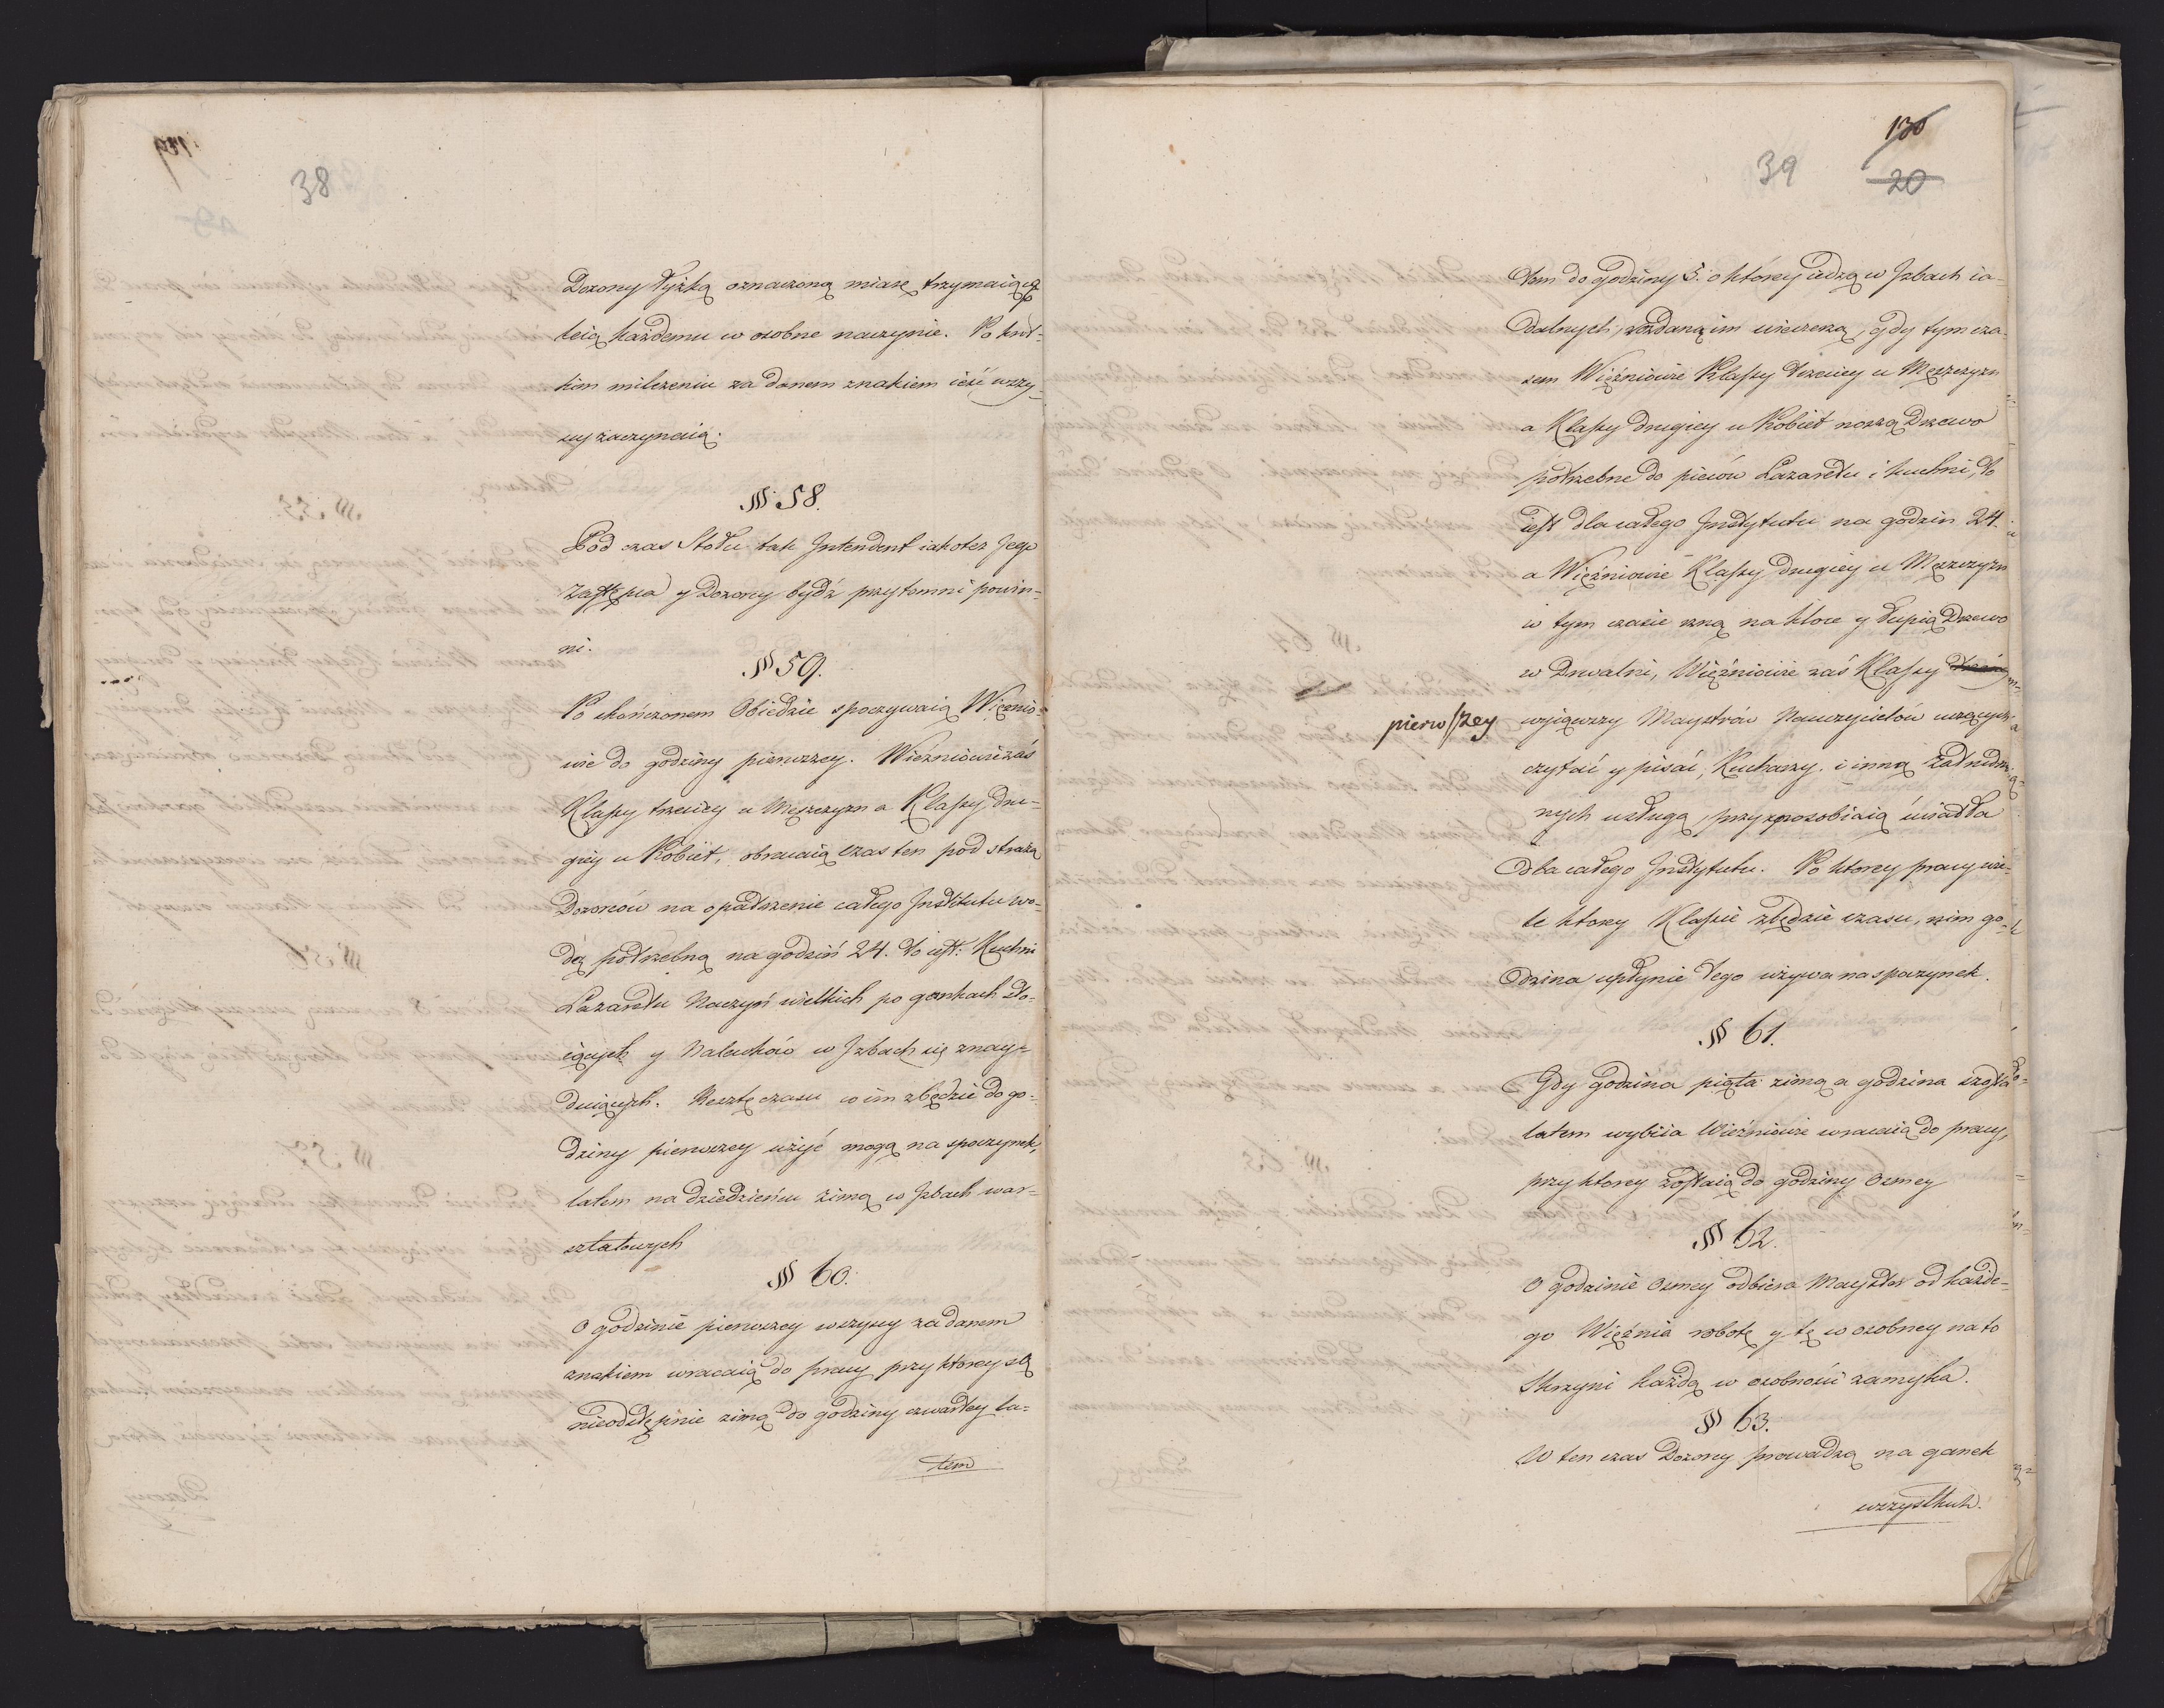 129
38
Dozorcy łyżką oznaczoną miarę trzymaiącą
leią każdemu w osobne naczynie. Po krót-
kim milczeniu za danem znakiem ieść wszy-
scy zaczynaią.
§§ 58.
Pod czas Stołu tak Intendent iakoteż Jego
Zastępca y Dozorcy bydź przytomni powin-
ni.
§§ 59.
Po skończonem Obiedzie spoczywaią Więznio-
wie do godziny pierwszey. Wieźniowie zaś
Klassy trzeciey u Męszczyzn a Klassy dru-
giey u Kobiet, obracaią czas ten pod strażą
Dozorców na opatrzenie całego Jnstitutu wo-
dą potrzebną na godzin 24. to iest: Kuchni
Lazaretu Naczyń wielkich po gankach sto-
iących y Nalewków w Jzbach się znay-
duiących. Resztę czasu co im zbędzie do go-
dziny pierwszey użyć mogą na spoczynek,
latem na dziedzieńcu zimą w Jzbach war-
sztatowych
§§ 60.
O godzinie pierwszey wszyscy za danem
znakiem wracaią do pracy przy ktorey są
nieodstępnie zimą do godziny czwartey la-
tem
130
39
20
tem do godziny 5. o ktorey iedzą w Jzbach ia-
dalnych, rozdaną im wieczerzą, gdy tym cza-
sem Więźniowie Klassy trzeciey u Męszczyzn
a Klassy drugiey u Kobiet noszą Drzewo
potrzebne do pieców Lazaretu i kuchni, to
iest dla całego Jnstytutu na godzin 24.
a Więźniowie Klassy drugiey u Męszczyzn
w tym czasie rzną na kloce y łupią Drzewo
w Drwalni, Więźniowie zaś Klassy
pierwszey wyiąwszy Maystrów Nauczycielów uczących
czytać y pisać, Kucharzy i inną zatrudnio-
nych usługą, przysposobiaią iadła
dla całego Jnstytutu. Po ktorey pracy wie-
le ktorey Klassie zbędzie czasu, nim go-
dzina upłynie tego używa na spoczynek.
§ 61.
Gdy godzina piąta zimą a godzina szosta
latem wybiia Wieźniowie wracaią do pracy,
przy ktorey zostaią do godziny osmey
§§ 62.
O godzinie osmey odbiera Mayster od każde-
go Więźnia robotę y tę w osobney na to
Skrzyni każdą w osobności zamyka.
§§ 63.
W ten czas Dozorcy prowadzą na ganek
wszystkich.